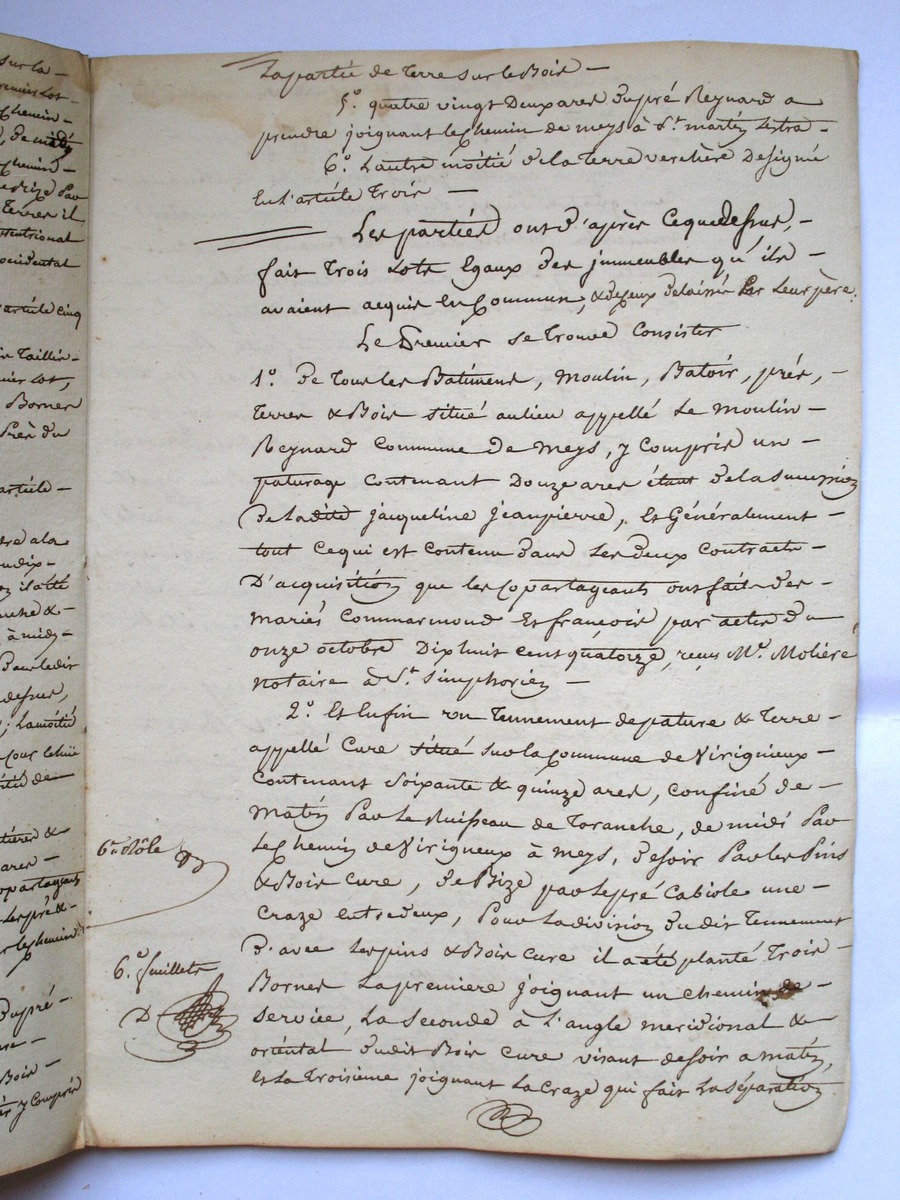 sur la —
premier Lot —
chemin —
, de matin
chemin —
de Bize Par
Terres il
septentrional
occidental
article cinq
Taillis —
premier Lot,
Bornes
Près du
article —
il a été
à midi —
Dans le dit
dessus,
; La moitié
pré —
Bois —
y Compris
La partie de Terre sur le Bois —
5°. quatre vingt Deux ares du pré Reynard a
prendre joignant le chemin de meys à St. martin Lestra —
6°. L'autre moitié de la Terre verchère Designé
En L'article Trois —
Les parties ont D'après Ce que Dessus, —
fait Trois Lots Egaux des immeubles qu'ils —
avaient acquis En Commun, & de ceux Delaissés Par Leur père.
Le Premier se Trouve Consister
1°. De Tous les Batiments, Moulin, Batoir, prés, —
Terres & Bois situé au lieu appellé Le Moulin —
Reynard Commune De Meys, y compris un —
paturage Contenant Douze ares étant De la Succession
De la dite jacqueline jeanpierre, Et Généralement —
tout Ce qui est Contenu dans Les deux Contracts —
D'acquisition que les Copartageants ont fait des —
Mariés Commarmond Et françois par actes du
onze octobre Dix huit Cent quatorze, reçus Me. Molière
Notaire à St. Simphorien —
2°. Et Enfin un Tennement de pature & Terre —
appellé Cure situé sur la Commune de Virigneux —
Contenant Soixante & quinze ares, Confiné de —
Matin Par Le Ruisseau de Toranche, de midi Par
Le Chemin de Virigneux à Meys, De soir Par les Pins
& Bois Cure, De Bize par Le pré Cabiole une —
Craze entre deux, Pour La division du dit Tennement
D'avec Les pins & Bois Cure il a été planté Trois —
Bornes La premiere joignant un Chemin de —
Service, La Seconde à L'angle meridional &
oriental du dit Bois Cure visant de soir a matin,
Et La Troisième joignant La Craze qui fait La Séparation
6e Rôle
6e. feuillets
D